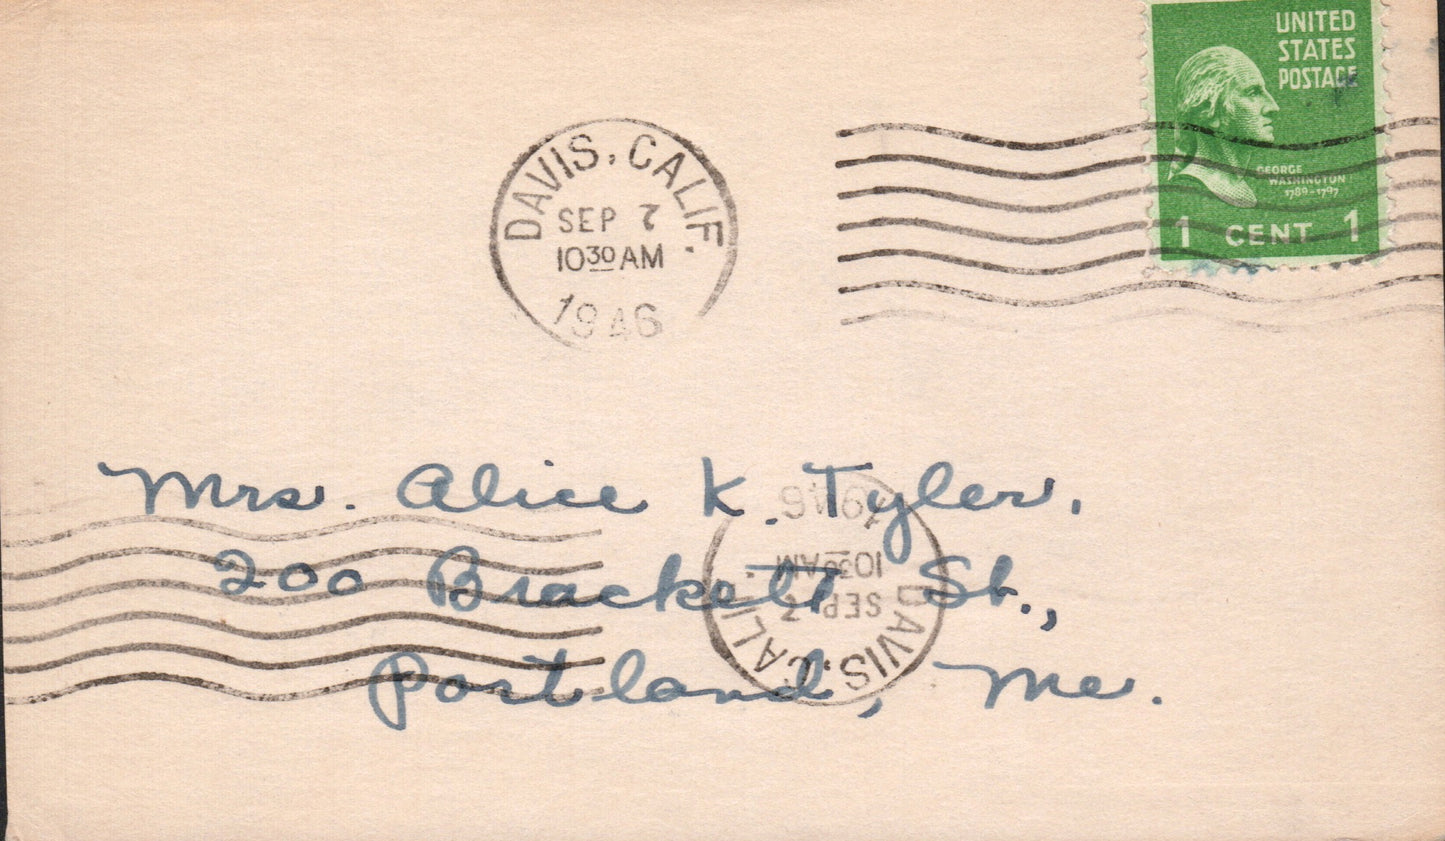 UNITED
STATES
POSTAGE
GEORGE
WASHINGTON
1789-1797
1 CENT 1
DAVIS, CALIF.
SEP 7
10 30 AM
1946
Mrs. Alice K. Tyler,
200 Brackett St.,
Portland, Me.
DAVIS, CALIF.
SEP 7
10 30 AM
1946